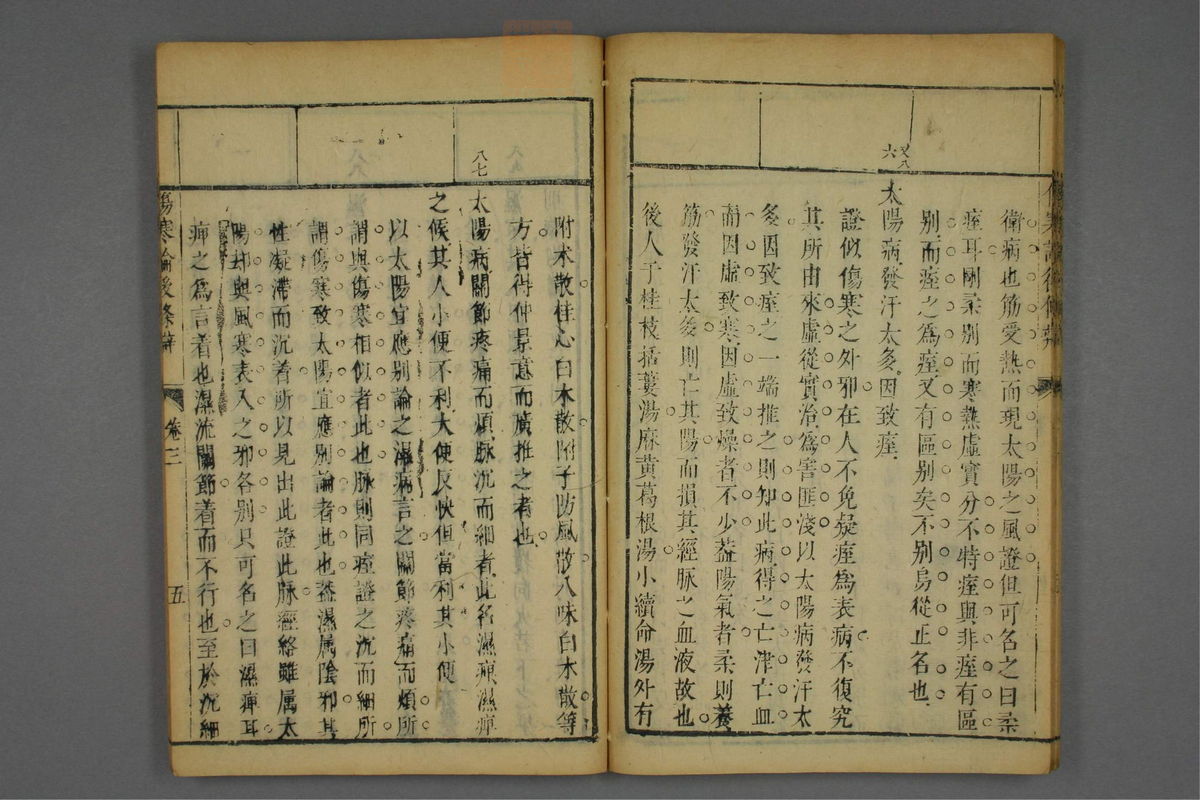 衛病也筋受熱而現太陽之風證但可名之曰柔
痙耳剛柔別而寒熱虛實分不特痙與非痙有區
別而痙之爲痙又有區別矣不別烏從正名也
又八六
太陽病發汗太多因致痙
證似傷寒之外邪在人不免疑痙爲表病不復究
其所由來虛從實治爲害匪淺以太陽病發汗太
多因致痙之一端推之則知此病得之亡津亡血
而因虛致寒因虛致燥者不少葢陽氣者柔則養
筋發汗太多則亡其陽而損其經脉之血液故也
後人于桂枝括蔞湯麻黃葛根湯小續命湯外有
附术散桂心白术散附子防風散八味白术散等
方皆得仲景意而廣推之者也
八七
太陽病關節疼痛而煩脉沉而細者此名濕痺濕痺
之候其人小便不利大便反快但當利其小便
以太陽宜應別論之濕病言之關節疼痛而煩所
謂與傷寒相似者此也脉則同痙證之沉而細所
謂傷寒致太陽宜應別論者此也葢濕属陰邪其
性凝滯而沉着所以見出此證此脉經絡雖属太
陽却與風寒表入之邪各別只可名之曰濕痺耳
痺之爲言着也濕流關節着而不行也至於沉細
傷寒論後條辨
卷三
五